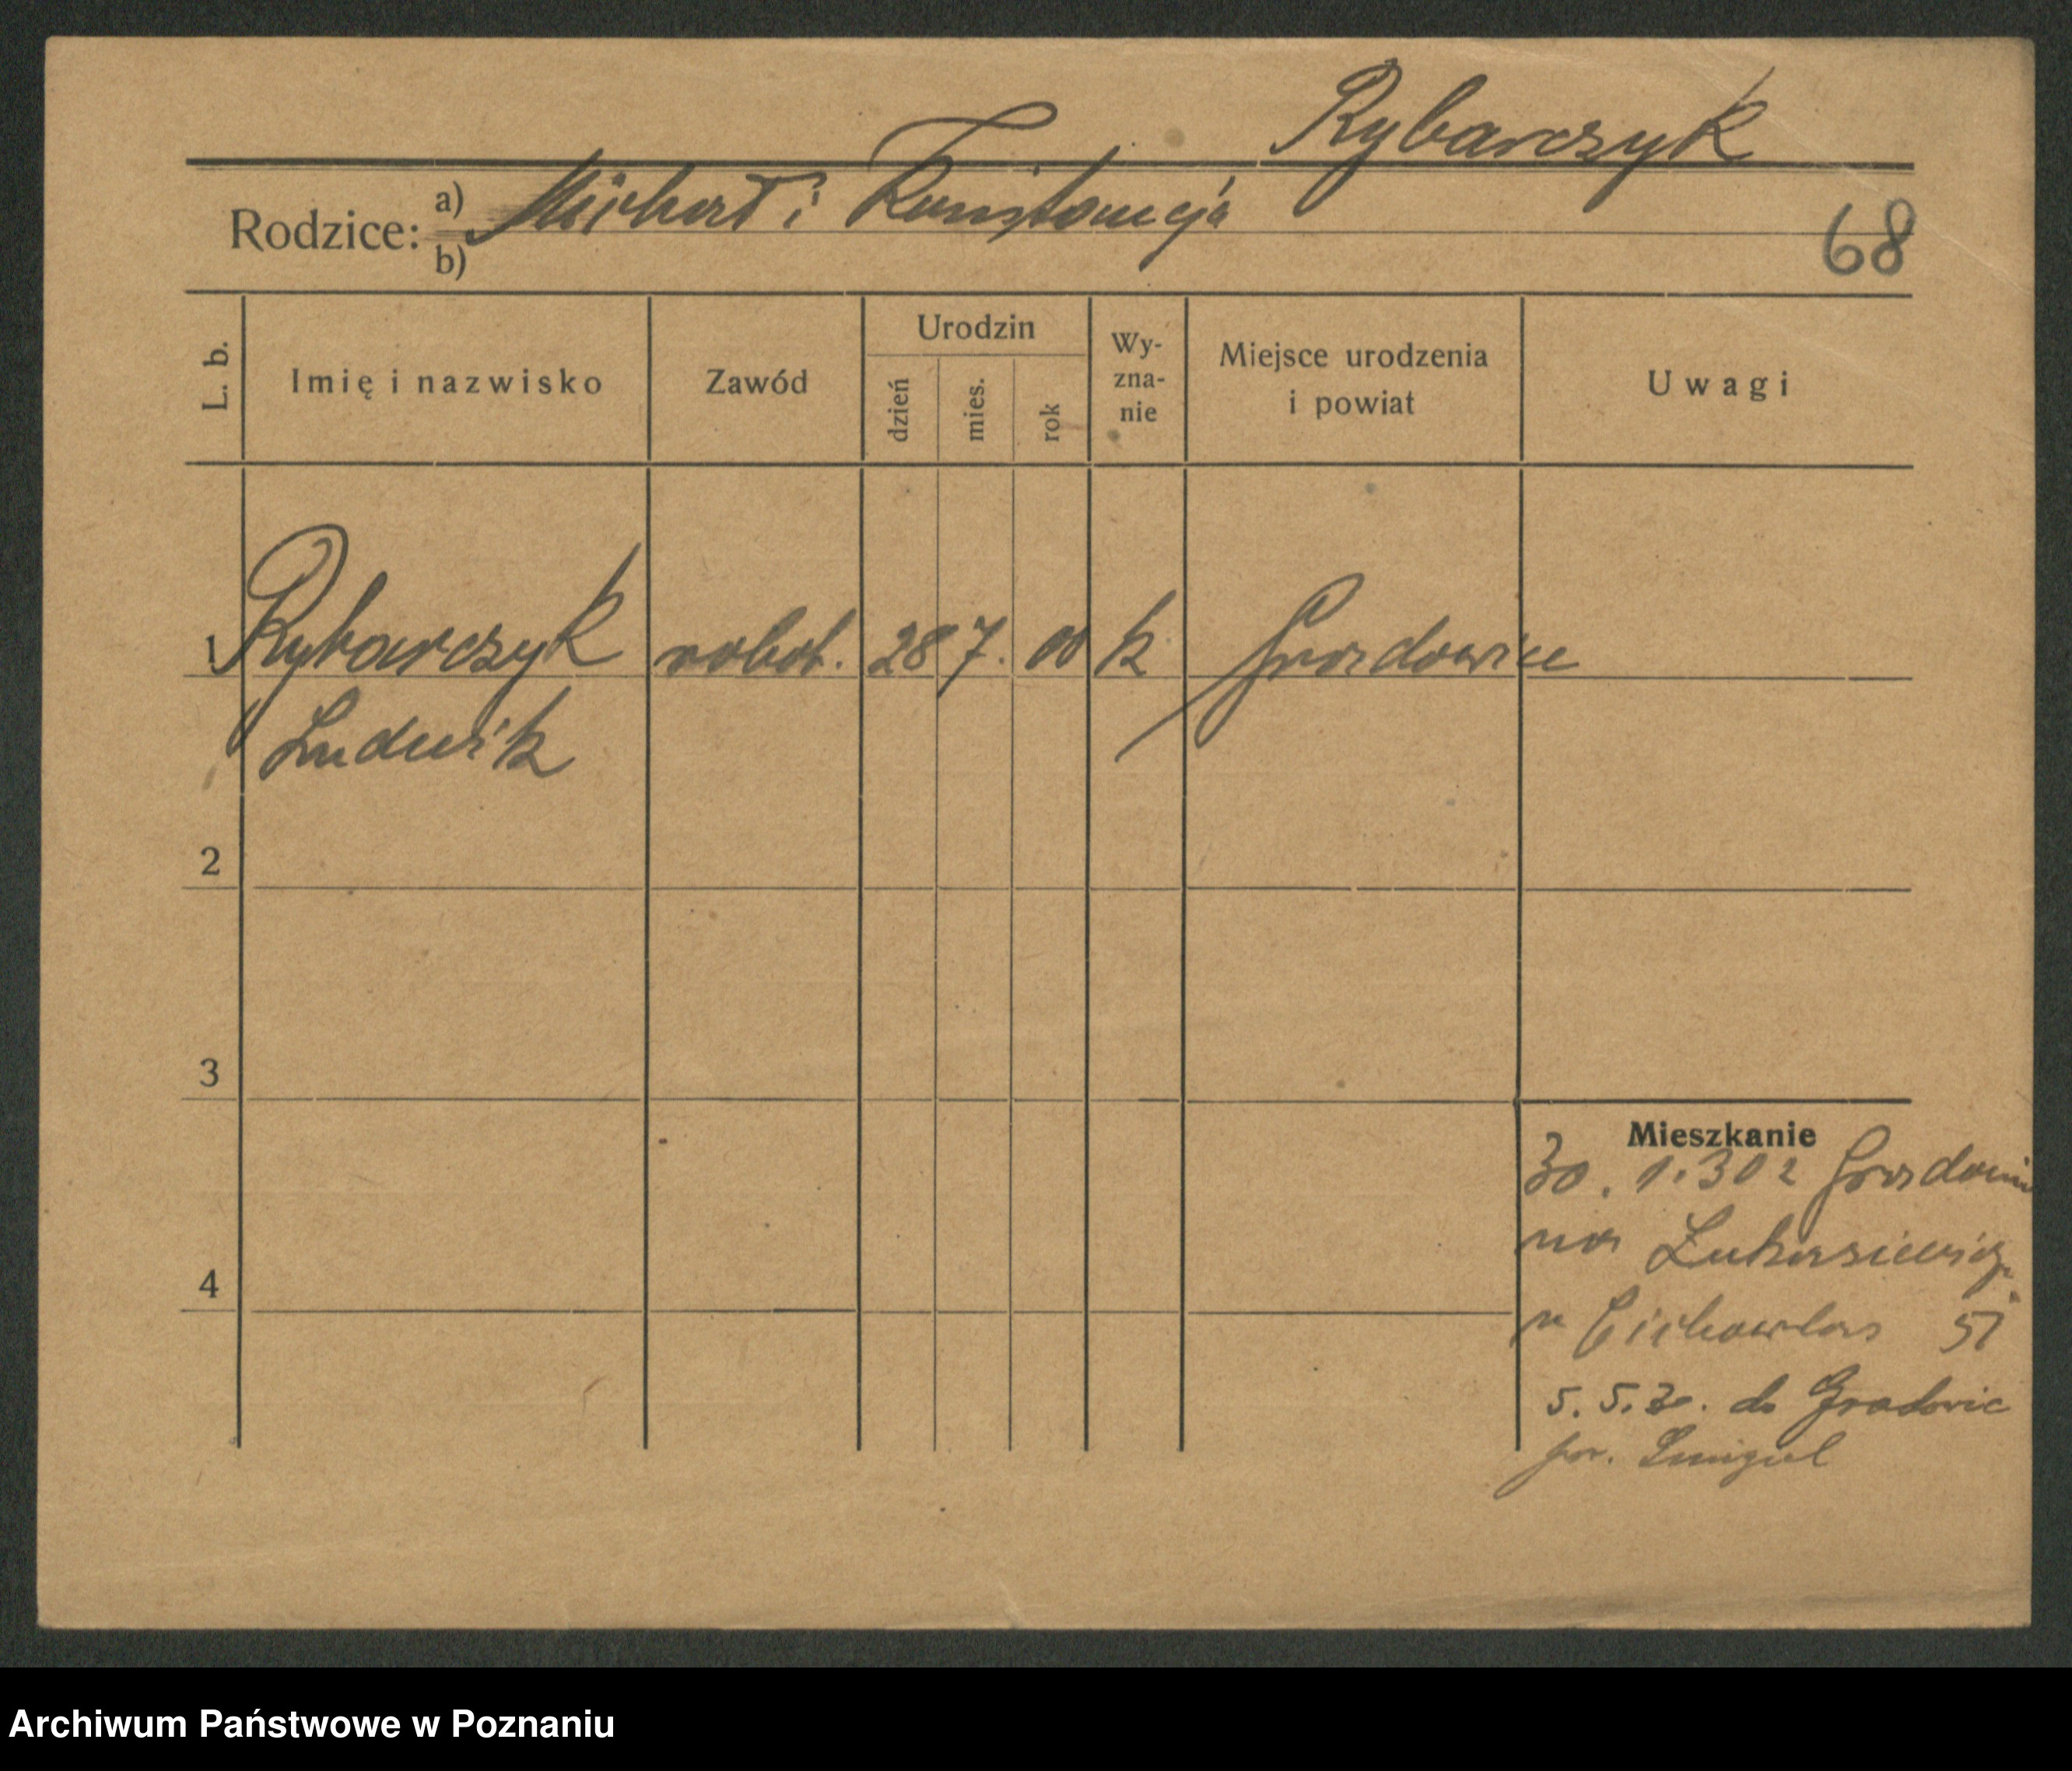 Rybarczyk
Rodzice: a) Michał i Konstancja
b)
68
L. b.
Imię i nazwisko
Zawód
Urodzin
dzień
mies.
rok
Wy-
zna-
nie
Miejsce urodzenia
i powiat
Uwagi
1 Rybarczyk robot. 28 7. 00 k Gradowice
Ludwik
2
3
4
Mieszkanie
30. 1. 30 z Gradowic
na
u 51
5. 5. 30. do Gradowic
pow. Śmigiel
Archiwum Państwowe w Poznaniu